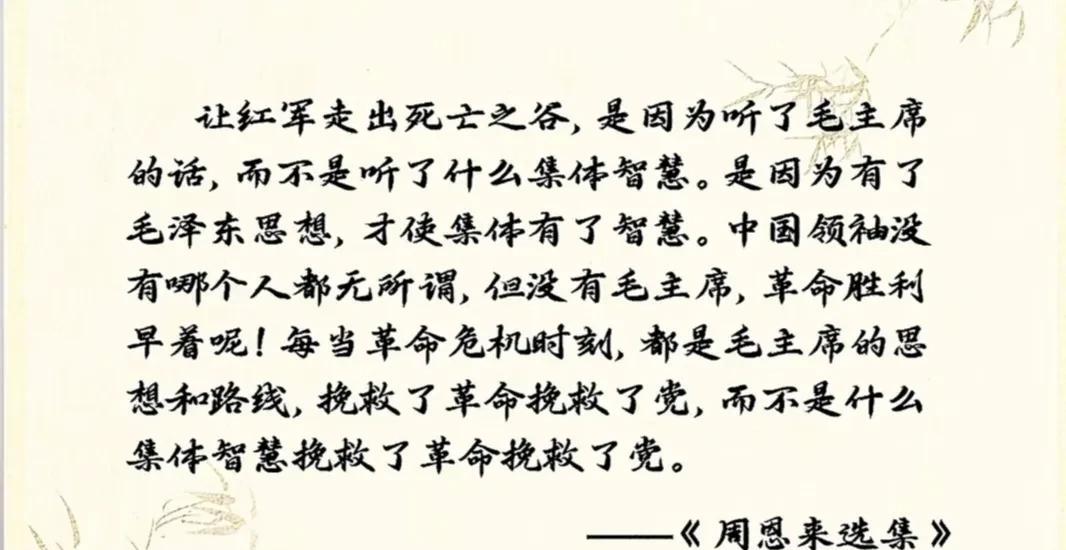 让红军走出死亡之谷，是因为听了毛主席
的话，而不是听了什么集体智慧。是因为有了
毛泽东思想，才使集体有了智慧。中国领袖没
有哪个人都无所谓，但没有毛主席，革命胜利
早着呢！每当革命危机时刻，都是毛主席的思
想和路线，挽救了革命挽救了党，而不是什么
集体智慧挽救了革命挽救了党。
——《周恩来选集》